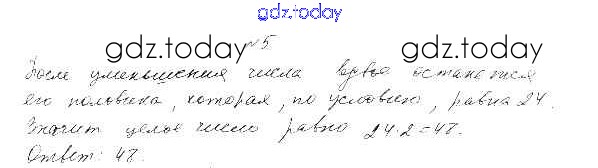 gdz.today
gdz.today №5 gdz.today
После уменьшения числа вдвое останется
его половина, которая, по условию, равна 24.
Значит целое число равно 24·2=48.
Ответ: 48.